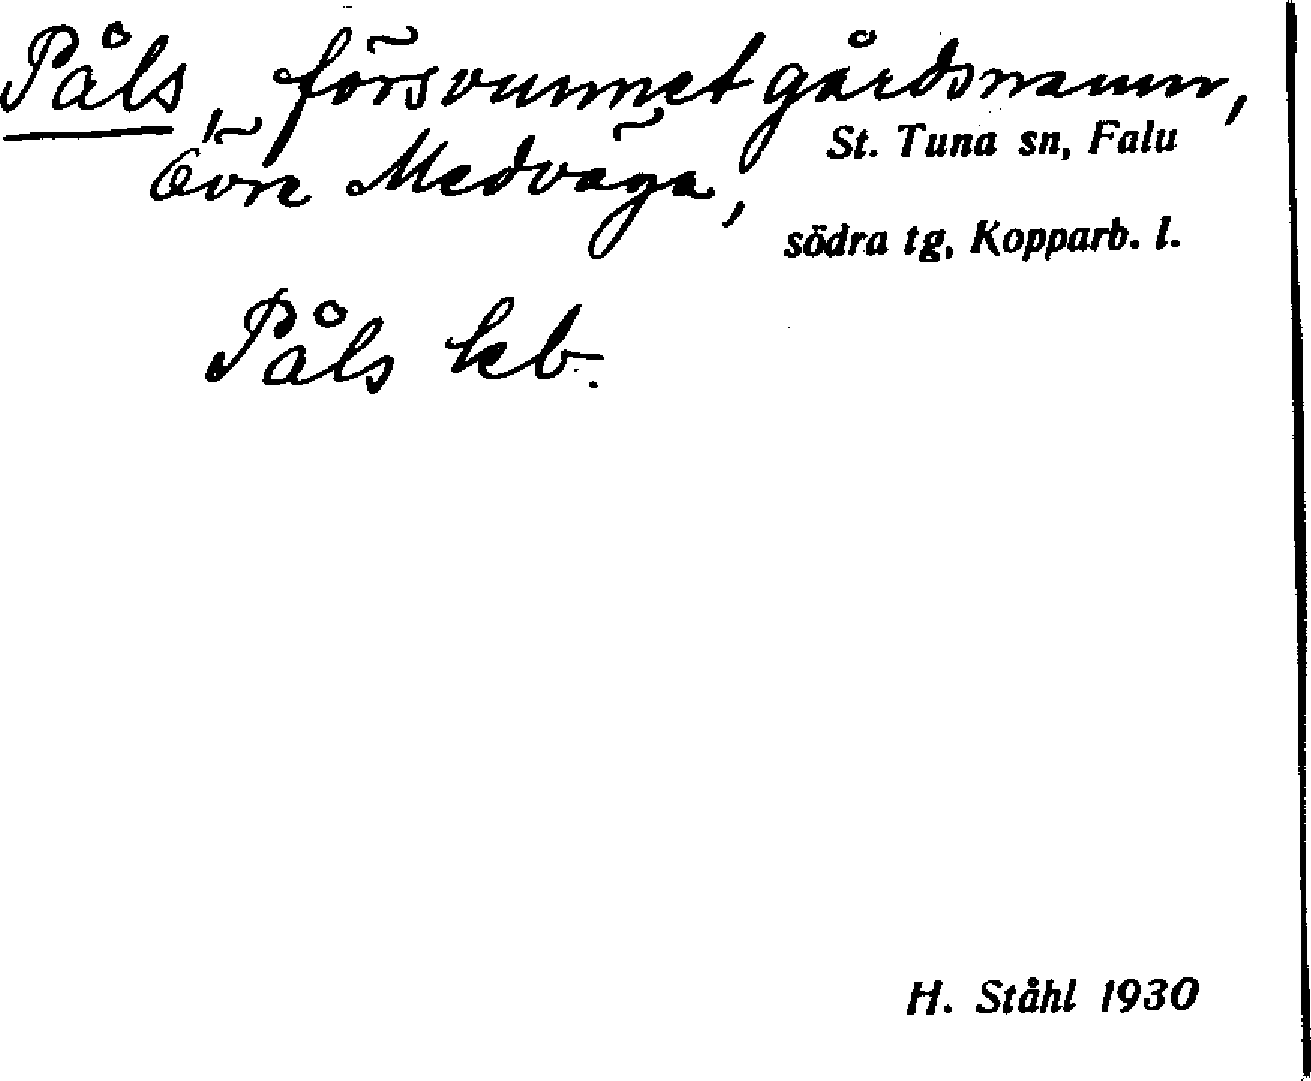 Påls, försvunnet gårdsnamn,
Övre Medväga,
St. Tuna sn, Falu
södra tg, Kopparb. l.
Påls kb.
H. Ståhl 1930